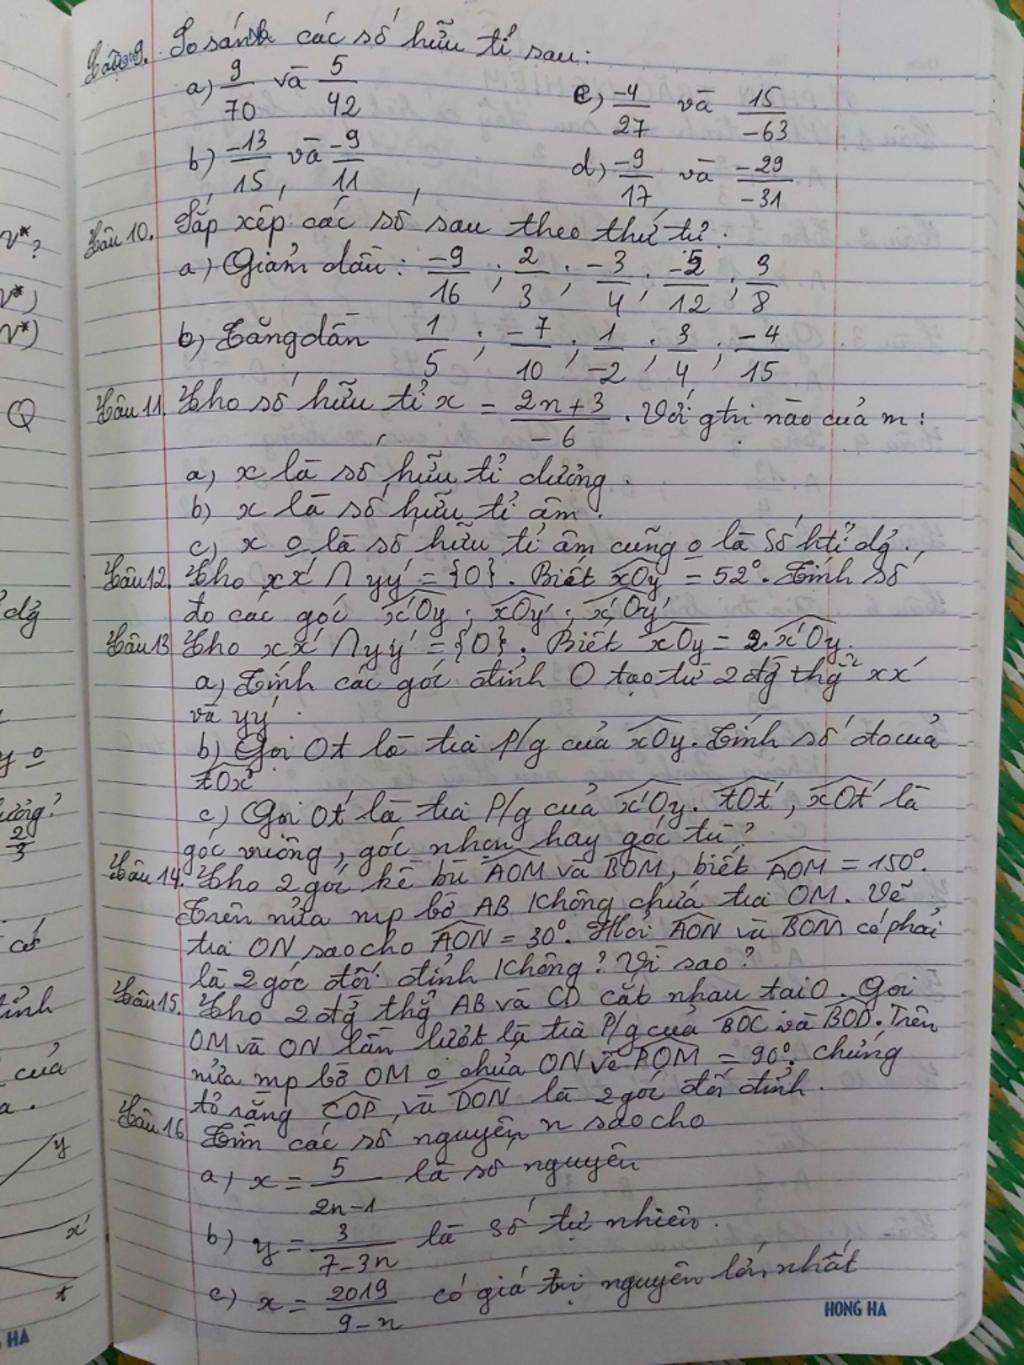 Câu 9. So sánh các số hữu tỉ sau:
a) 9/70 và 5/42
c) -4/27 và 15/-63
b) -13/15 và -9/11
d) -9/17 và -29/-31
Câu 10. Sắp xếp các số sau theo thứ tự:
a) Giảm dần: -9/16 ; 2/3 ; -3/4 ; /12 ; 9/8
b) Tăng dần 1/5 ; -7/10 ; 1/-2 ; 3/4 ; -4/15
Câu 11. Cho số hữu tỉ x = 2n+3/-6 . Với gtrị nào của m:
a) x là số hữu tỉ dương
b) x là số hữu tỉ âm.
c) x o là số hữu tỉ âm cũng o là số htỉ dg.
Câu 12. Cho xx' ∩ yy' = {O}. Biết xOy = 52°. Tính số
đo các góc x'Oy ; xOy' ; x'Oy'
Câu 13 Cho xx' ∩ yy' = {O}. Biết xOy = 2.x'Oy.
a) Tính các góc đỉnh O tạo từ 2 đg thg xx'
và yy'.
b) Gọi Ot là tia p/g của xOy. Tính số đo của
tOx'
c) Gọi Ot' là tia P/g của x'Oy. tOt', xOt' là
góc vuông, góc nhọn hay góc tù?
Câu 14. Cho 2 góc kề bù AOM và BOM, biết AOM = 150°.
Trên nửa mp bờ AB không chứa tia OM. Vẽ
tia ON sao cho AON = 30°. Hỏi AON và BOM có phải
là 2 góc đối đỉnh không? Vì sao?
Câu 15. Cho 2 đg thg AB và CD cắt nhau tại O. Gọi
OM và ON lần lượt là tia P/g của BOC và BOD. Trên
nửa mp bờ OM o chứa ON vẽ POM = 90°. chứng
tỏ rằng COP và DON là 2 góc đối đỉnh.
Câu 16 Tìm các số nguyên n sao cho
a) x = 5/2n-1 là số nguyên
b) y = 3/7-3n là số tự nhiên.
c) x = 2019/9-n có giá trị nguyên lớn nhất
HONG HA
N*?
N*)
N*)
Q
dg
y o
2/3
có
của
a.
y
x'
t
HA